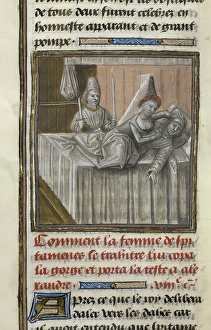 de tous furent celebrez en
honneste apparat et de grant
pompe
Comment la femme de spi
tamenes le traistre luy copa
la gorge et porta la teste a ale
xandre. viii. c.
Apres ce que le roy delibera
daler vers les dahee car
il auoit entendu que